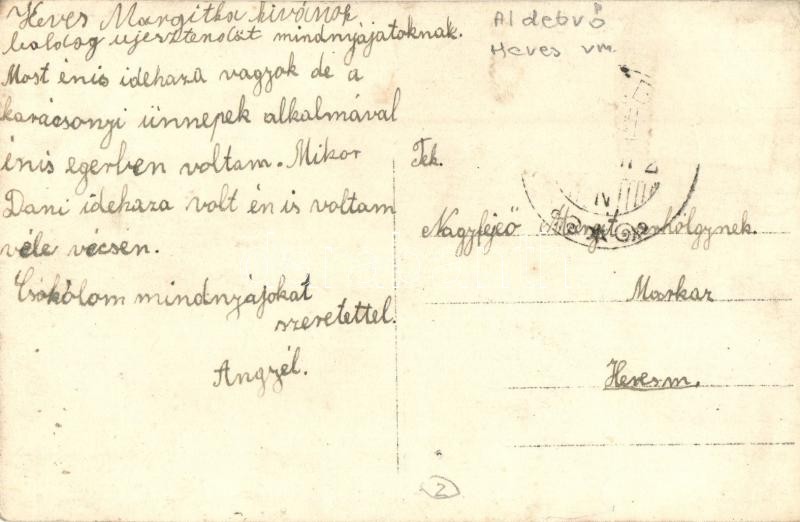 Keves Margitka kivánok
boldog ujesztendőt mindnyájatoknak.
Most énis idehaza vagyok de a
karácsonyi ünnepek alkalmával
énis egerben voltam. Mikor
Dani idehaza volt én is voltam
véle vécsen.
Csókólom mindnyájokat
szeretettel.
Angzél.
Aldebrő
Heves vm.
Tek.
Nagyfejeő Margit urhölgynek.
Markaz
Hevesm.
2